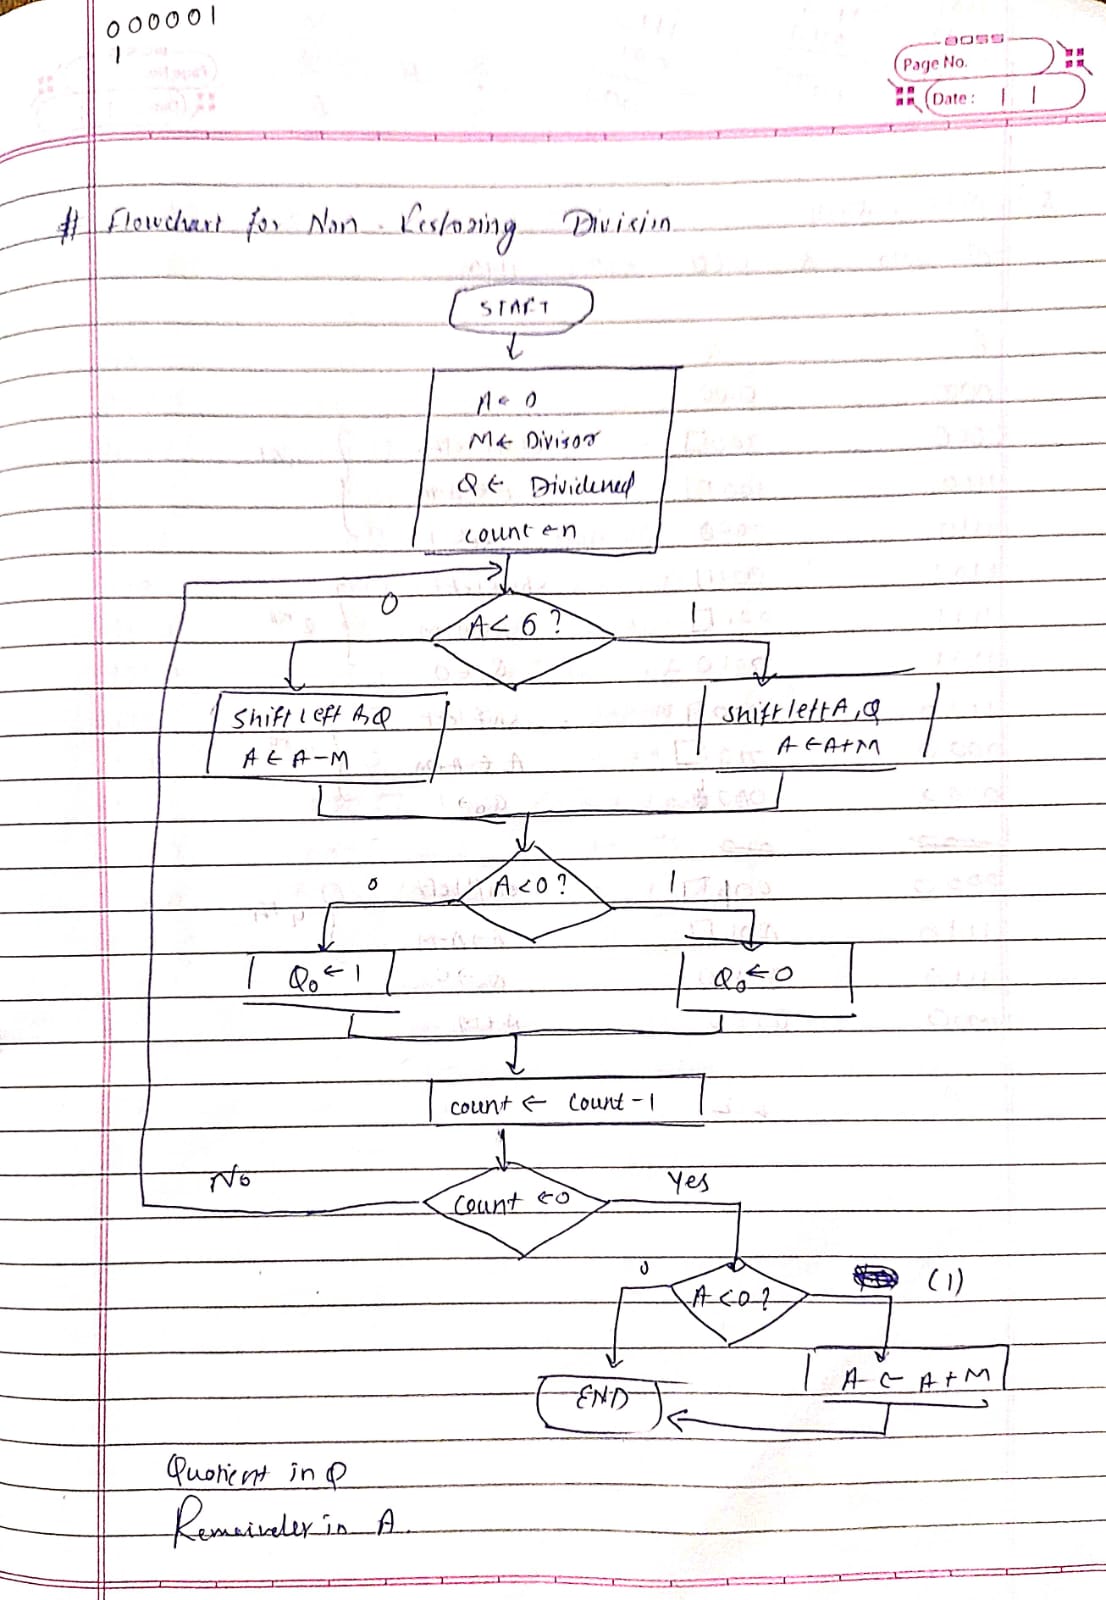 000001
1
BOSS
Page No.
Date :
# Flowchart for Non-Restoring Division
START
A ← 0
M ← Divisor
Q ← Dividened
count ← n
0
A < 6 ?
1
Shift left A,Q
A ← A-M
Shift left A,Q
A ← A+M
0
A<0 ?
1
Q₀ ← 1
Q₀ ← 0
count ← count - 1
No
count ← 0
Yes
0
A <0 ?
(1)
END
A ← A + M
Quotient in Q
Remainder in A.